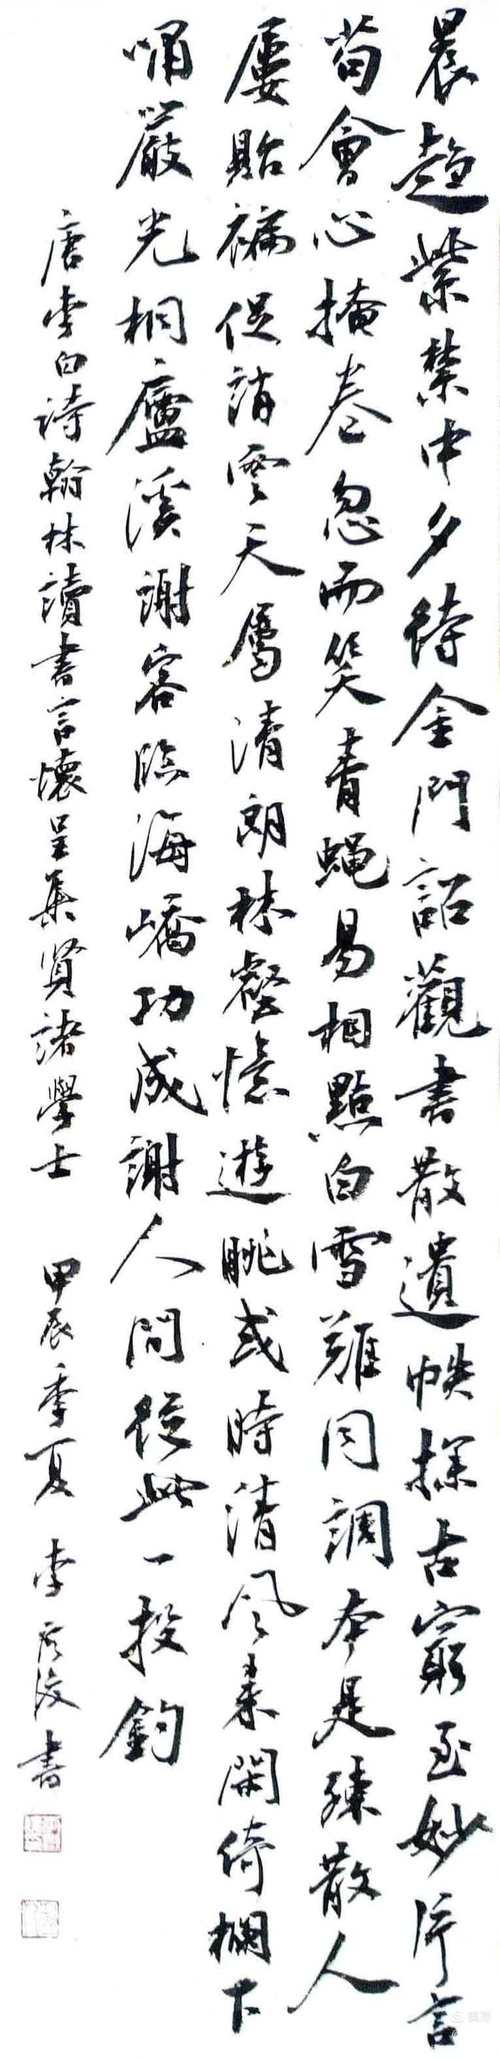 晨趨紫禁中夕待金門詔觀書散遺帙探古窮至妙片言
苟會心掩卷忽而笑青蠅易相點白雪難同調本是疎散人
屢貽褊促誚雲天屬清朗林壑憶遊眺或時清風來閑倚欄下
嘯嚴光桐廬溪謝客臨海嶠功成謝人間從此一投釣
唐李白詩翰林讀書言懷呈集賢諸學士 甲辰季夏 李書